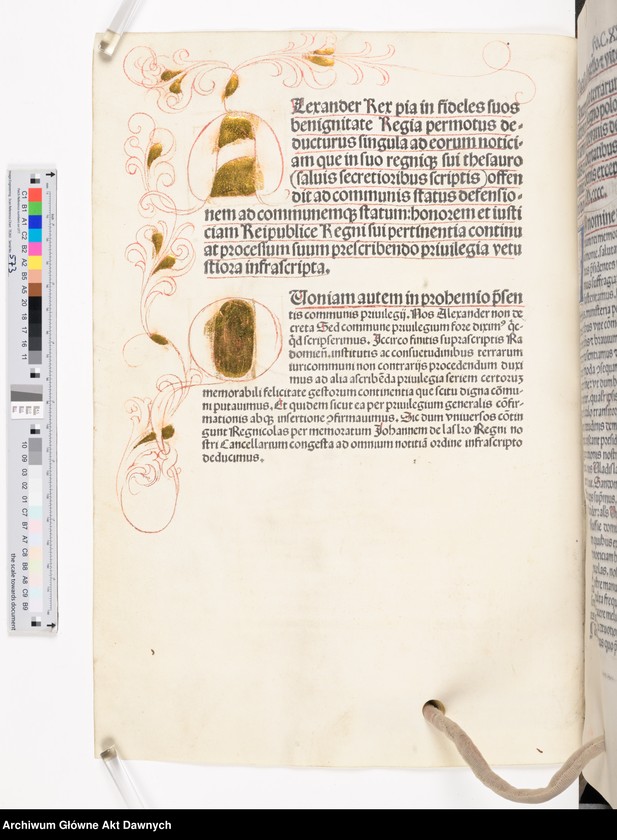 Alexander Rex pia in fideles suos
benignitate Regia permotus de-
ducturus singula ad eorum notici-
am que in suo regniqꝫ sui thesauro
(saluis secretioribus scriptis) offen
dit ad communis status defensio-
nem ad communemqꝫ statum: honorem et iusti
ciam Reipublice Regni sui pertinentia continu
at processum suum prescribendo priuilegia vetu
stiora infrascripta.
Quoniam autem in prohemio p̃sen
tis communis priuilegij. Nos Alexander non de
creta Sed commune priuilegium fore diximꝰ q̃c-
q̃d scripserimus. Iccirco finitis suprascriptis Ra
domień. institutis ac consuetudinibus terrarum
iuri communi non contrarijs procedendum duxi
mus ad alia ascribẽda priuilegia seriem certo
memorabili felicitate gestorum continentia que scitu digna cõmu-
ni putauimus. Et quidem sicut ea per priuilegium generalis cõfir-
mationis absqꝫ insertione ꝯfirmauimus. Sic dum vniuersos cõtin
gunt Regnicolas per memoratum Johannem de lasko Regni no
stri Cancellarium congesta ad omnium noticiã ordine infrascripto
deducimus.
573
the scale towards document
Archiwum Główne Akt Dawnych